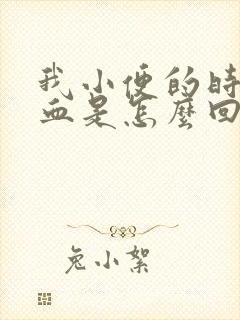 我小便的時
血是怎麼回
兔小絮